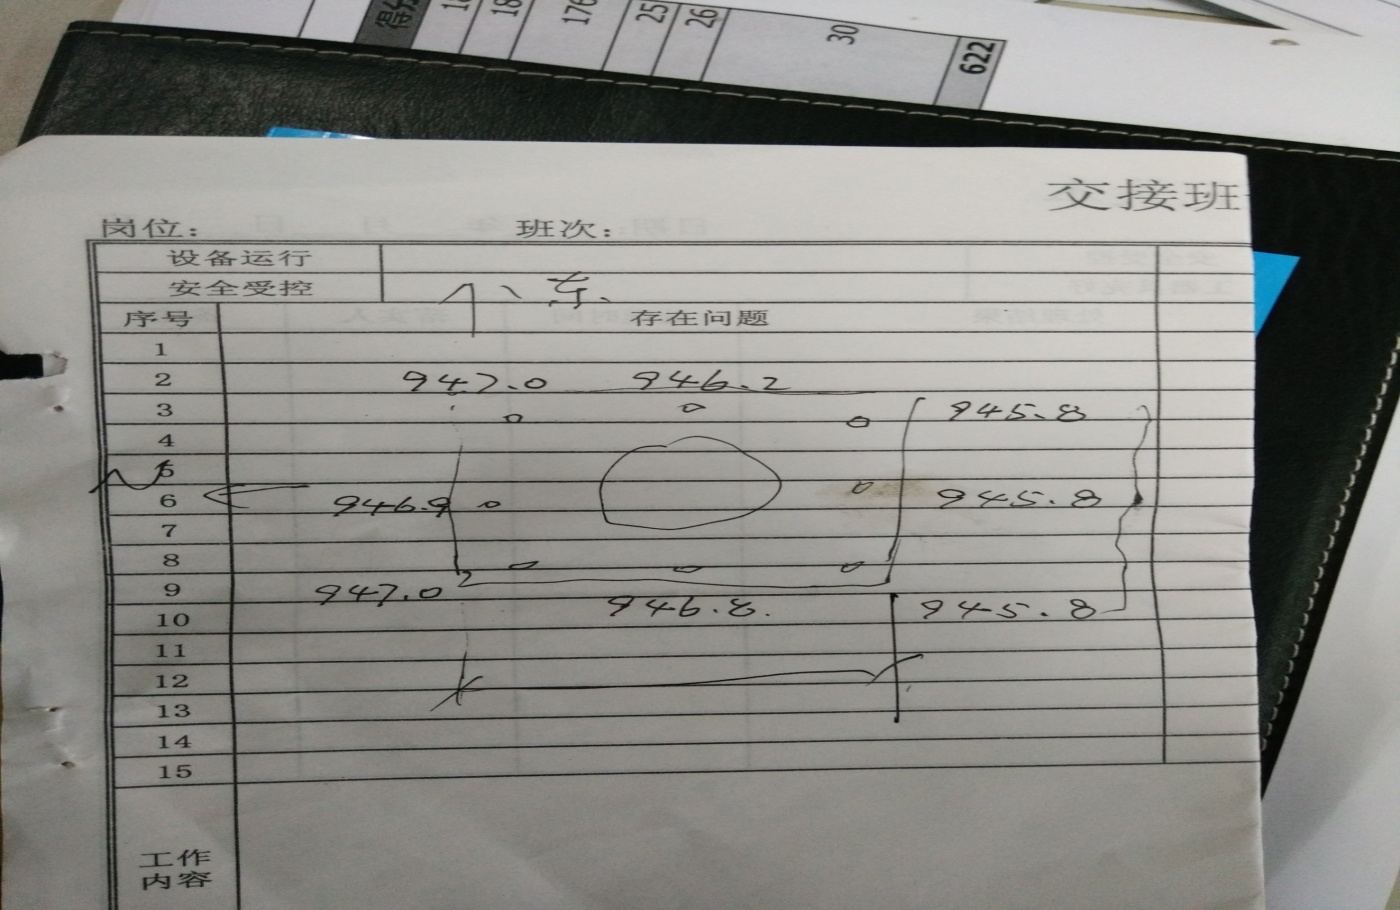 622
30
26
25
176
18
交接班
岗位： 班次：
设备运行
安全受控
东
序号 存在问题
1
2 947.0 946.2
3 945.8
4
5
N
6 946.9 945.8
7
8
9 947.0
10 946.8. 945.8
11
12
13
14
15
工作
内容